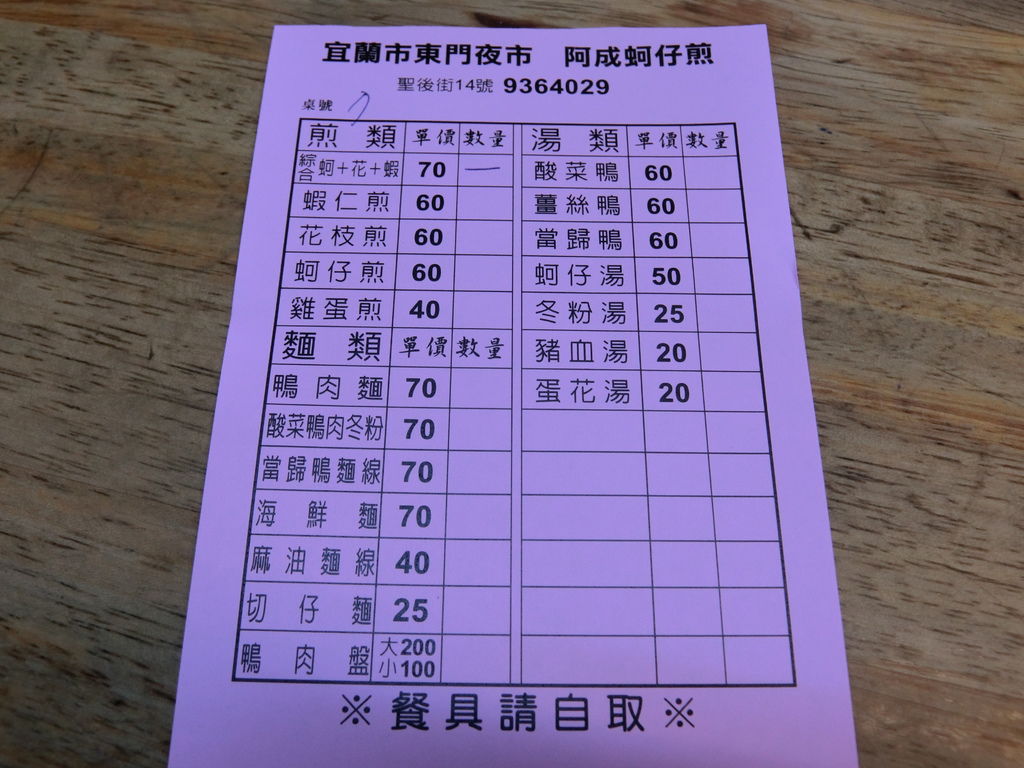 宜蘭市東門夜市 阿成蚵仔煎
聖後街14號 9364029
桌號 7
煎類 單價 數量
綜合 蚵+花+蝦 70 一
蝦仁煎 60
花枝煎 60
蚵仔煎 60
雞蛋煎 40
麵類 單價 數量
鴨肉麵 70
酸菜鴨肉冬粉 70
當歸鴨麵線 70
海鮮麵 70
麻油麵線 40
切仔麵 25
鴨肉盤 大200 小100
湯類 單價 數量
酸菜鴨 60
薑絲鴨 60
當歸鴨 60
蚵仔湯 50
冬粉湯 25
豬血湯 20
蛋花湯 20
※餐具請自取※